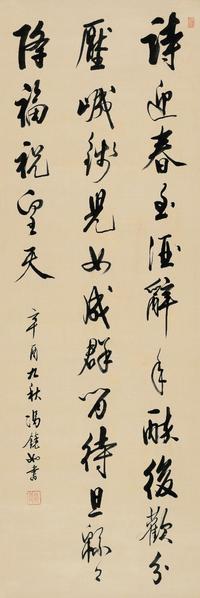 詩迎春至酒辭年酣後歡分
壓歲錢兒女成群待旦
降福祝皇天
辛酉九秋馮鏡如書